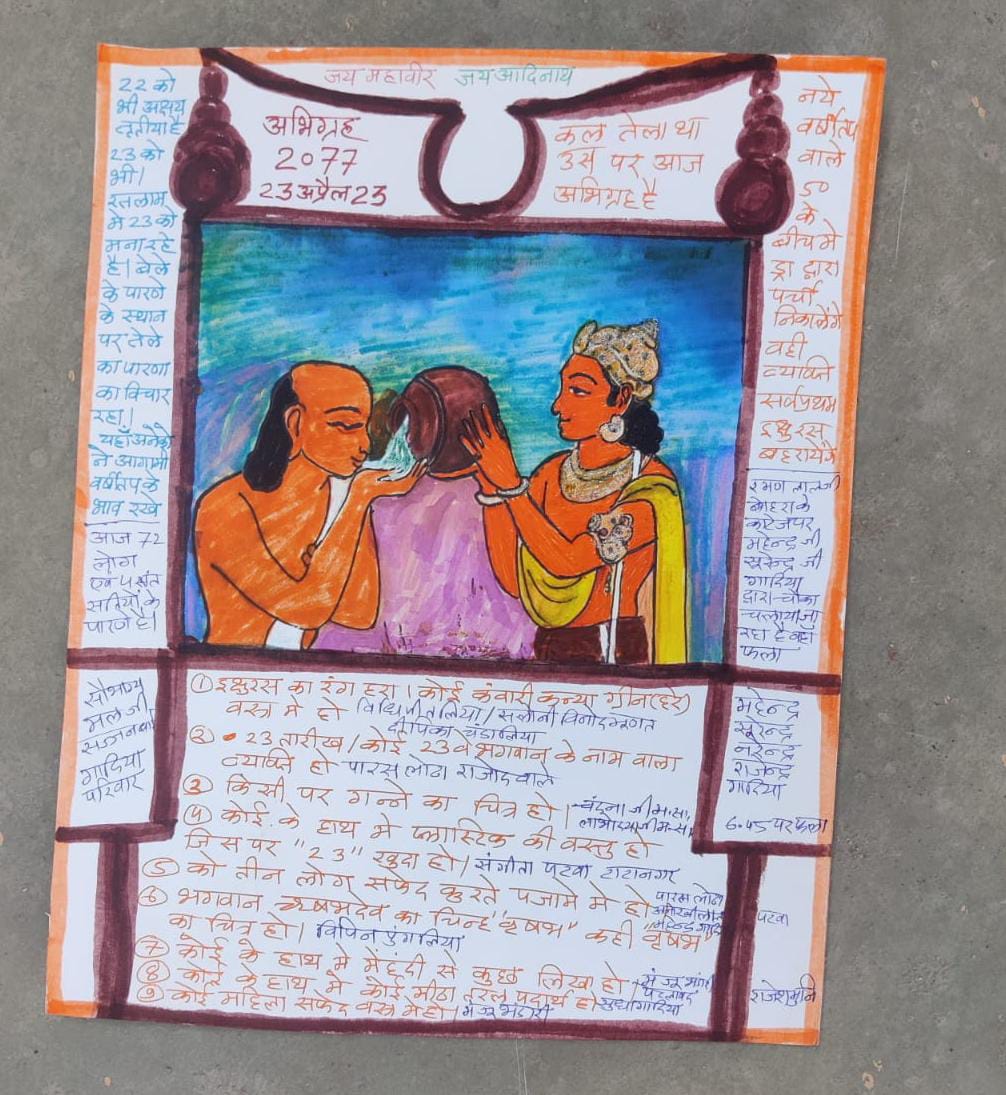 जय महावीर जय आदिनाथ
22 को
भी अक्षय
तृतीया है
23 को
भी।
रतलाम
मे 23 को
मना रहे
है। बेले
के पारणे
के स्थान
पर तेले
का पारणा
का विचार
रहा।
यहाँ अनेको
ने आगामी
वर्षीतप के
भाव रखे
आज 72
लोग
एवं 4 संत
सतियों के
पारणे है।
अभिग्रह
2077
23 अप्रैल 23
कल तेला था
उस पर आज
अभिग्रह है
नये
वर्षीतप
वाले
50
के
बीच मे
ड्रा द्वारा
पर्ची
निकालेंगे
वही
व्यक्ति
सर्वप्रथम
इक्षुरस
बहरायेंगे
रमण लालजी
बोहरा के
महेन्द्र जी
सुरेन्द्र जी
गादिया
द्वारा चौका
चलाया जा
रहा है वहाँ
फला
सौभाग्य
मल जी
सज्जनबाई
गादिया
परिवार
① इक्षुरस का रंग हरा। कोई कंवारी कन्या ग्रीन (हरे)
वस्त्र मे हो विधि पीतलिया / सलोनी विनोद मूणत
दीपिका चंडालिया
② 23 तारीख / कोई 23 वे भगवान के नाम वाला
व्यक्ति हो पारस लोढा राजोद वाले
③ किसी पर गन्ने का चित्र हो। चंदना जी म.सा.
④ कोई के हाथ मे प्लास्टिक की वस्तु हो
जिस पर "23" खुदा हो / संगीता पटवा टाटानगर
⑤ को तीन लोग सफेद कुर्ते पजामे मे हो पारस लोढा
⑥ भगवान ऋषभदेव का चिन्ह "वृषभ" कही "वृषभ"
का चित्र हो।
⑦ कोई के हाथ मे मेंहदी से कुछ लिखा हो
⑧ कोई के हाथ मे कोई मीठा तरल पदार्थ हो सुधा गादिया
⑨ कोई महिला सफेद वस्त्र मे हो। मंजू भंडारी
महेन्द्र
सुरेन्द्र
नरेन्द्र
राजेन्द्र
गादिया
6.45 पर फला
पटवा
राजेशमुनि